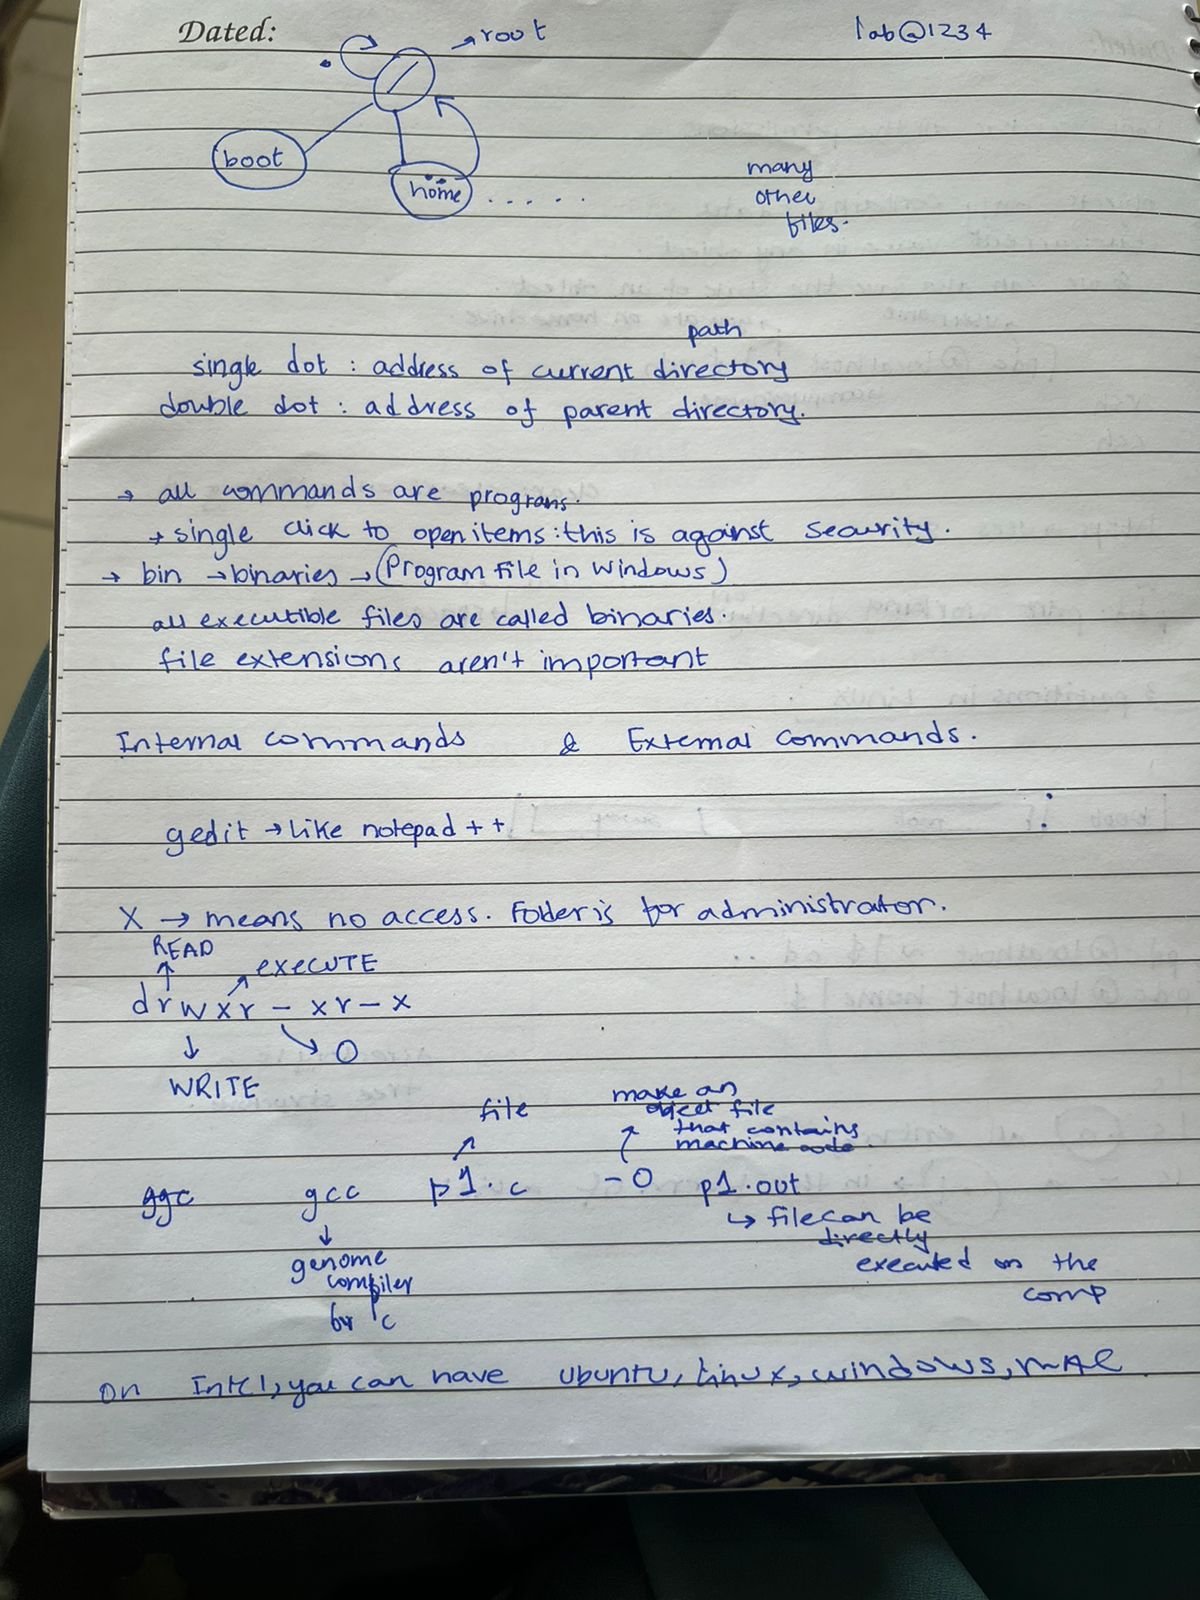 Dated:
root
lab@1234
/
.
boot
..
home
. . . . . .
many
other
files.
path
single dot : address of current directory
double dot : address of parent directory.
→ all commands are programs.
→ single click to open items : this is against security.
→ bin → binaries → (Program File in Windows)
all executible files are called binaries.
file extensions aren't important
Internal commands & External commands.
gedit → like notepad ++
X → means no access. Folder is for administrator.
READ
EXECUTE
drwxr - xr - x
0
WRITE
file
make an
object file
that contains
machine code.
ggc gcc p1.c -O p1.out
↳ file can be
directly
executed on the
comp
genome
compiler
for c
On Intel, you can have Ubuntu, Linux, windows, MAC